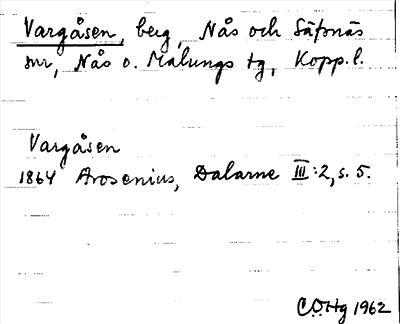 Vargåsen, berg, Nås och Säfsnäs
snr, Nås o. Malungs tg, Kopp. l.
Vargåsen
1864 Arosenius, Dalarne III:2, s. 5.
C.O.Hg 1962